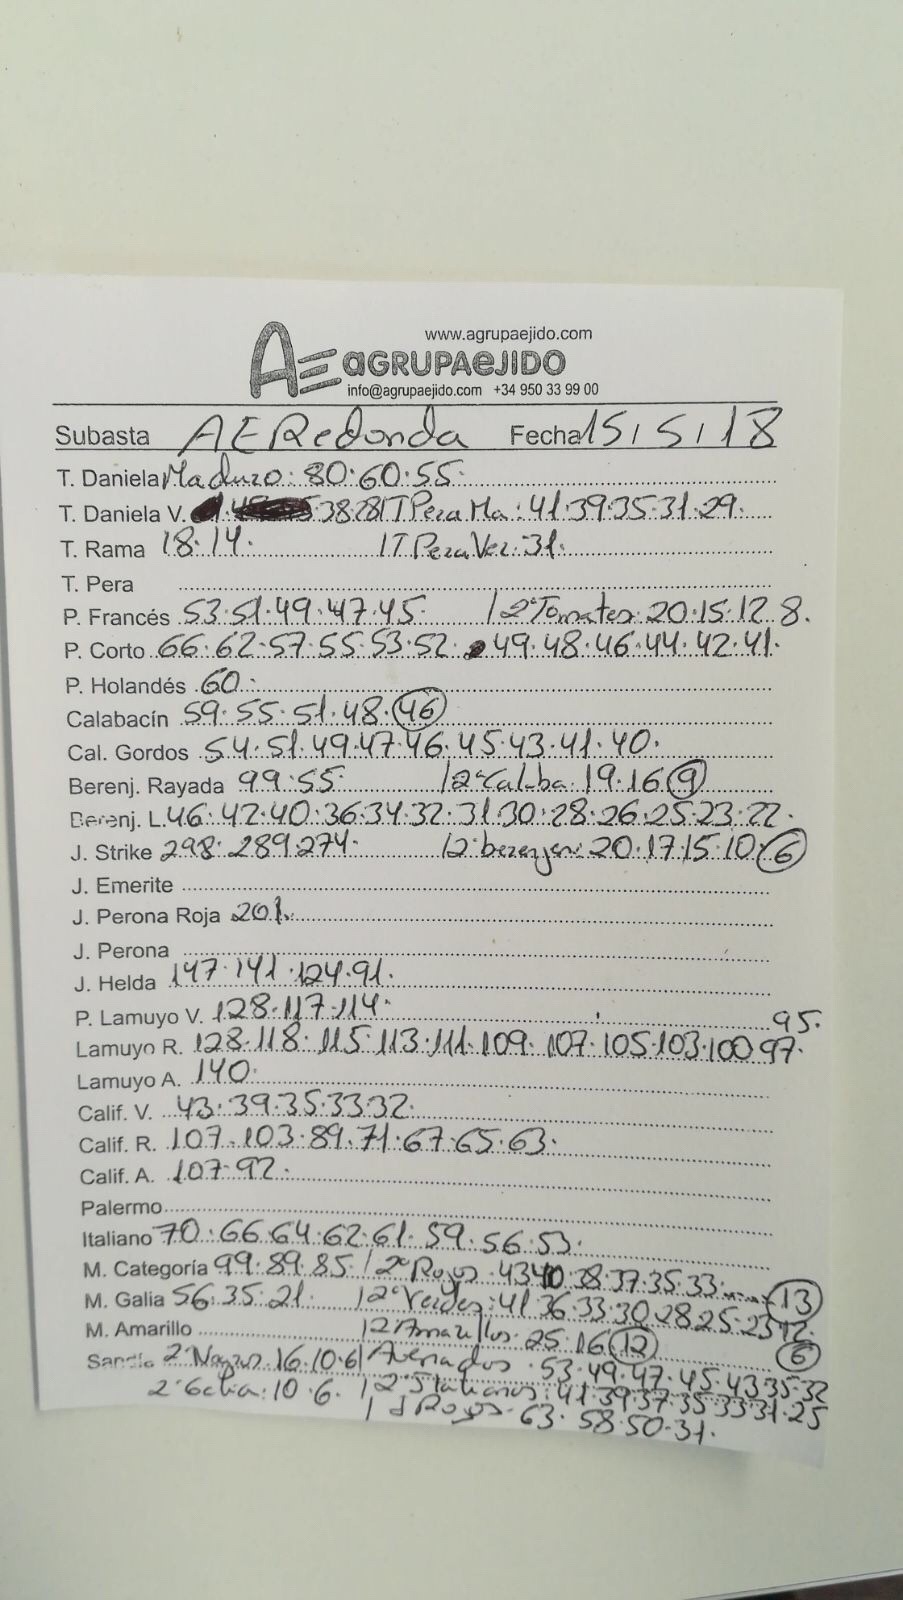 www.agrupaejido.com
AE aGRUPAeJIDO
info@agrupaejido.com +34 950 33 99 00
Subasta AERedonda Fecha 15/5/18
T. Daniela Maduro: 80.60.55.
T. Daniela V. 38.28 / T Pera Ma: 41.39.35.31.29.
T. Rama 18.14. / T Pera Ver: 31.
T. Pera
P. Francés 53.51.49.47.45. / 2ª Tomates: 20.15.12.8.
P. Corto 66.62.57.55.53.52. 49.48.46.44.42.41.
P. Holandés 60.
Calabacín 59.55.51.48.46
Cal. Gordos 54.51.49.47.46.45.43.41.40.
Berenj. Rayada 99.55. / 2ª Calaba. 19.16.9
Berenj. L. 46.42.40.36.34.32.31.30.28.26.25.23.22.
J. Strike 298.289.274. / 2ª berenjen: 20.17.15.10.6
J. Emerite
J. Perona Roja 201.
J. Perona
J. Helda 147.141.124.91.
P. Lamuyo V. 128.117.114.
95.
Lamuyo R. 128.118.115.113.111.109.107.105.103.100.97.
Lamuyo A. 140.
Calif. V. 43.39.35.33.32.
Calif. R. 107.103.89.71.67.65.63.
Calif. A. 107.92.
Palermo
Italiano 70.66.64.62.61.59.56.53.
M. Categoría 99.89.85. / 2ª Rojos. 43 40.38.37.35.33. 13
M. Galia 56.35.21. / 2ª Verdes: 41.36.33.30.28.25.23
M. Amarillo / 2 Amarillos. 25.16.12 6
Sandía 2ª Negras 16.10.6 / 53.49.47.45.43.35.32
2ª Galia: 10.6. / 2ª Italianos: 41.39.37.35.33.31.25
Rojos. 63.58.50.31.